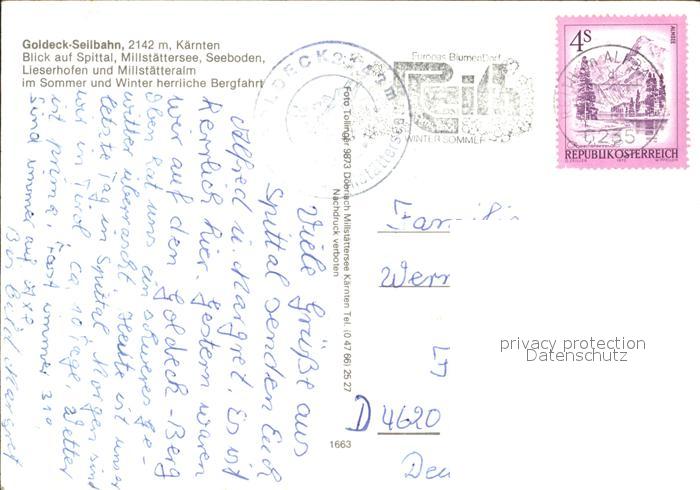 Goldeck-Seilbahn, 2142 m, Kärnten
Blick auf Spittal, Millstättersee, Seeboden,
Lieserhofen und Millstätteralm
im Sommer und Winter herrliche Bergfahrt
Viele Grüße aus
Spittal senden Euch
Alfred u. Margret. Es ist
herrlich hier. Gestern waren
wir auf den Goldeck-Berg
oben hat uns ein schweres Ge-
witter überrascht. Heute ist unser
letzter Tag in Spittal Morgen sind
wir in Tirol ca. 10 Tage. Wetter
ist prima, fast immer 30°
sind immer auf Axe
Bis bald Margret
Foto Tollinger 9873 Döbriach Millstättersee Kärnten Tel. (0 47 66) 25 27
Nachdruck verboten
1663
Europas BlumenDorf
Reith
WINTER SOMMER
4S
ALMSEE
6235
REPUBLIK ÖSTERREICH
Familie
Wern
D 4620
Deu
privacy protection
Datenschutz